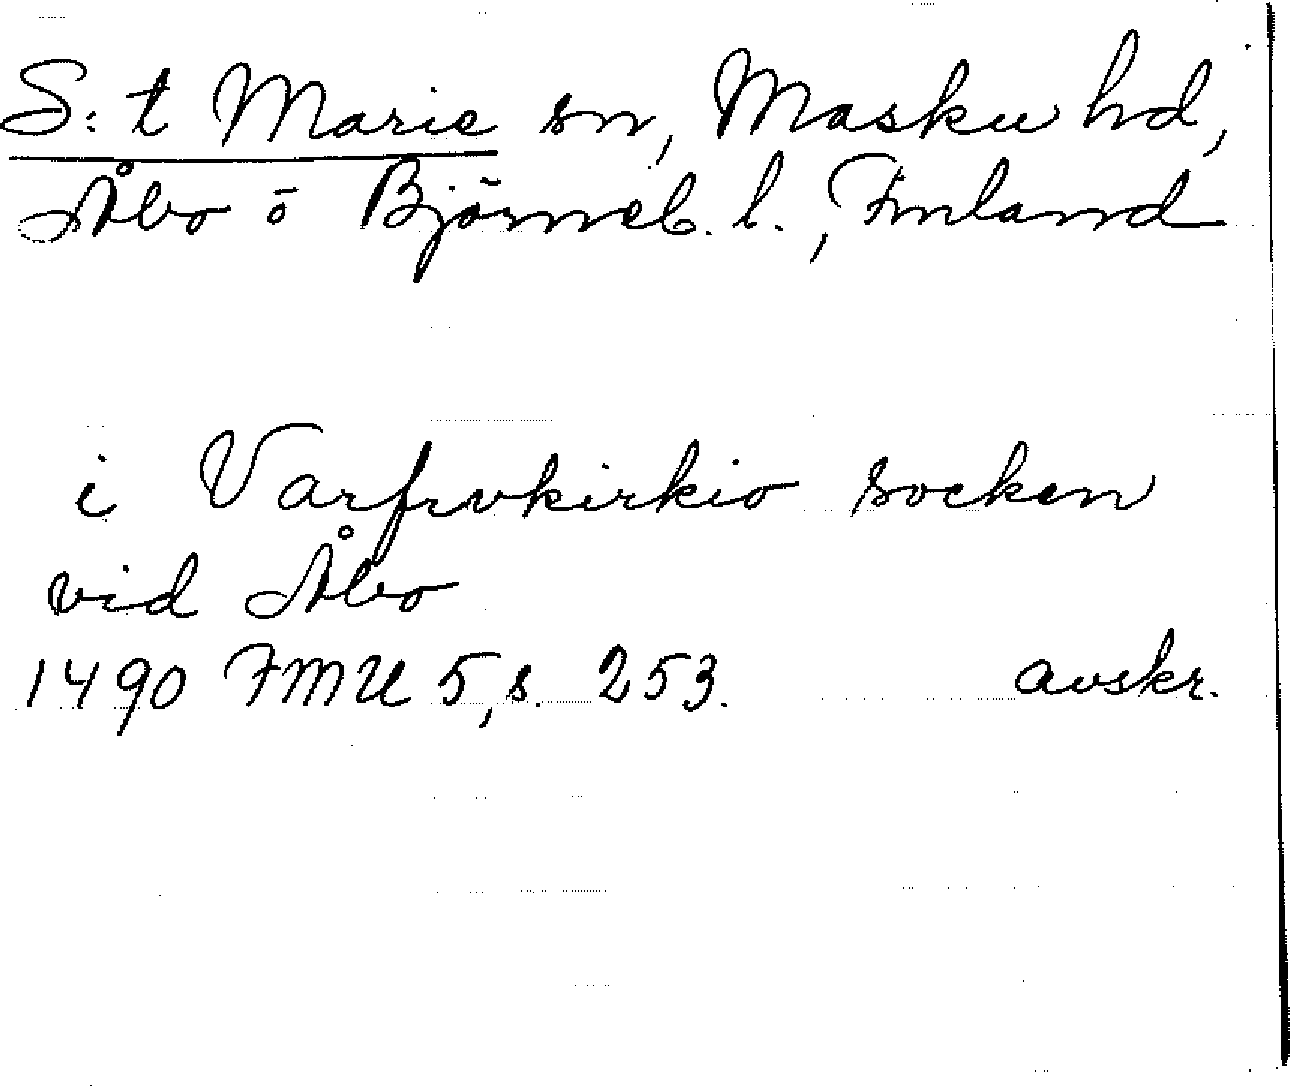 S:t Marie sn, Masku hd,
Åbo ö Björneb. l., Finland
i Varfrvkirkio socken
vid Åbo
1490 FMU 5, s. 253. avskr.